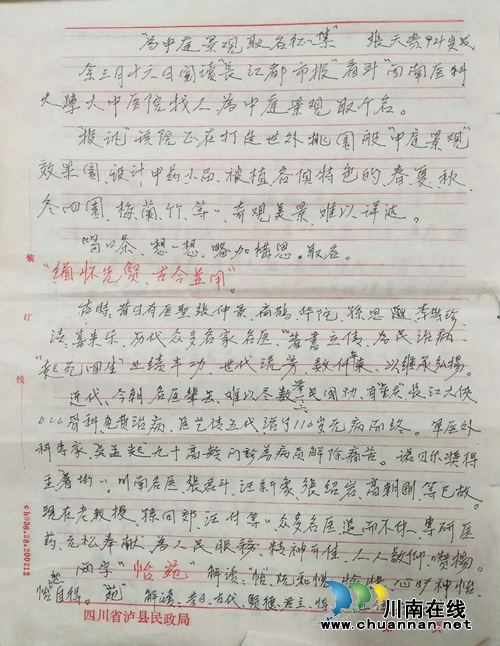 "为中庭景观取名征集" 张天贵94岁
余三月十六日阅读"长江都市报"看到"西南医科
大学中医院找人为中庭景观取个名。
报讯"该院正在打造世外桃园般"中庭景观"
效果图、设计中药小品、被植、各倾特色的春、夏、秋、
冬四园、梅兰竹、等"、奇观美景、难以详述。
喝口茶、想一想、略加构思。取名。
"缅怀先贤、古今并用"。
古时、昔日有医圣张仲景、扁鹊、华佗、孙思邈、李时珍、
历代众多名家名医、"著书立传、为民治病、
"起死回生"业绩丰功、世代流芳、数仟年来、以继承弘扬。
近代、今朝名医辈出、难以尽数、民国初、有 长江大侠
骨科免费治病、医艺传五代、活了110岁无病而终。军医外
科专家、吴孟超九十高龄、门诊为病员解除痛苦。诺贝尔奖得
主 。川南名医、张君斗、汪新象、张绍岩、高朝刚、等已故。
现在老教授、孙同郊、汪付等"众多名医、退而不休、专研医
药、无私奉献、为人民服务、精神可佳、人人敬仰、赞扬。
两字"怡苑"解读、"怡、悦和悦、愉快、心旷神怡、
怡然自得。"苑"解读、昔日古代、贤德、君主、
四川省泸县民政局
装
订
线
ch036·28·200212
川南在线
chuannan.net